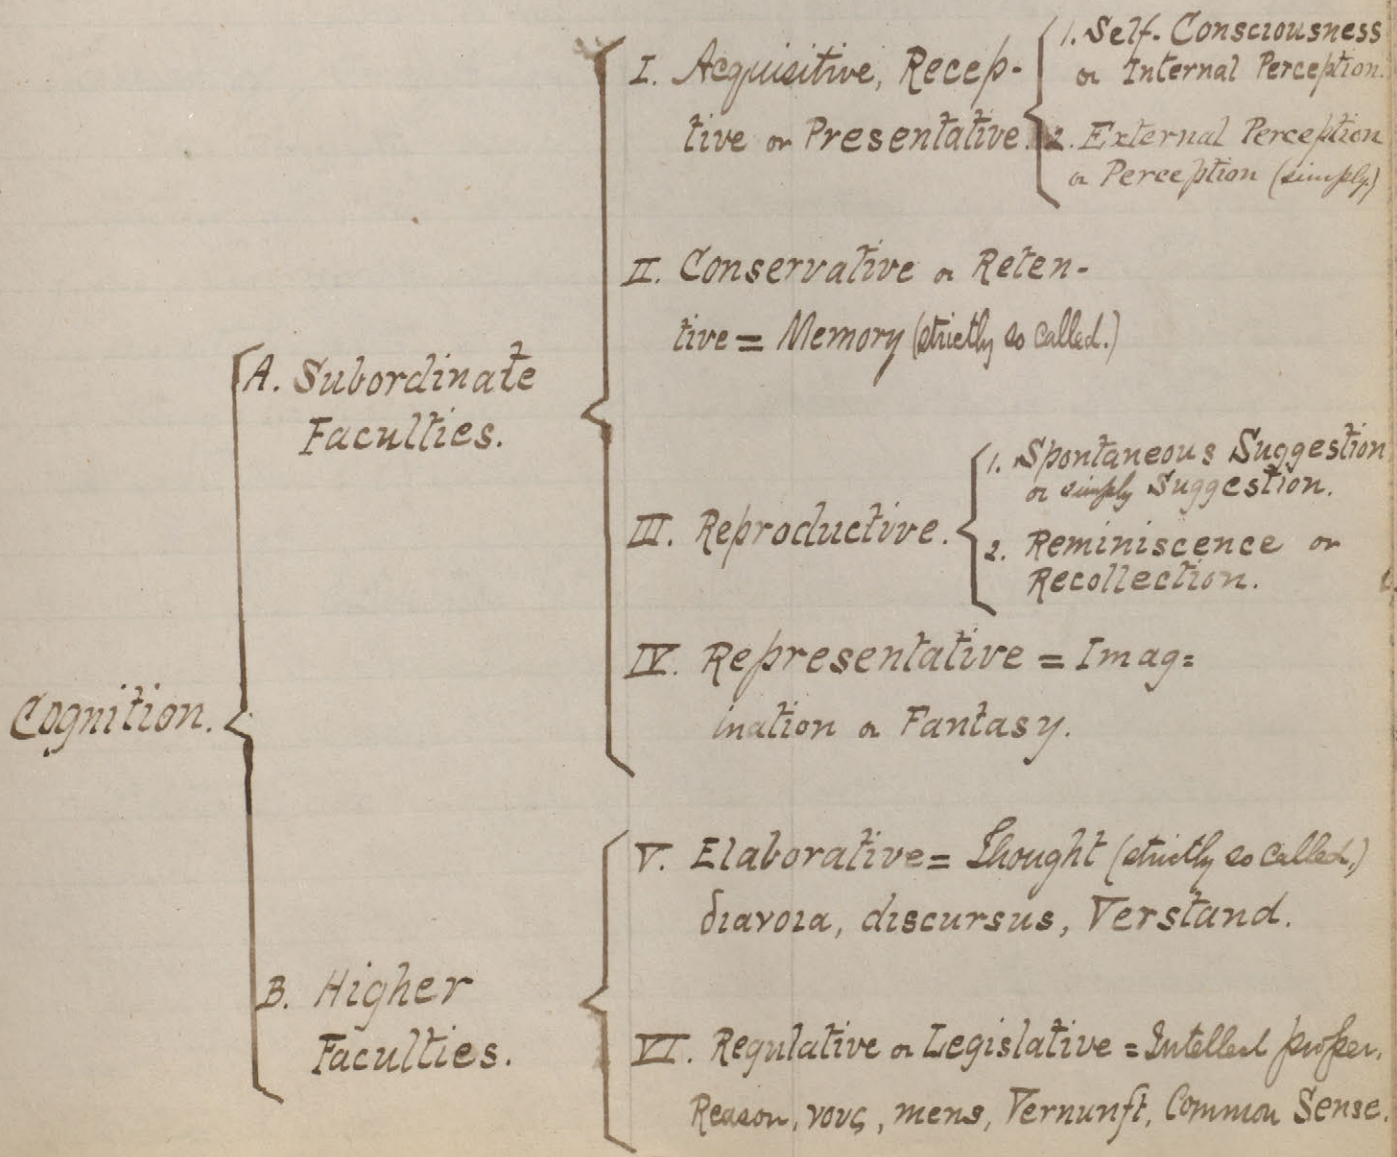 Cognition.
A. Subordinate
Faculties.
I. Acquisitive, Recep-
tive or Presentative.
1. Self-Consciousness
or Internal Perception.
2. External Perception
or Perception (simply)
II. Conservative or Reten-
tive = Memory (strictly so called.)
III. Reproductive.
1. Spontaneous Suggestion
or simply Suggestion.
2. Reminiscence or
Recollection.
IV. Representative = Imag=
ination or Fantasy.
B. Higher
Faculties.
V. Elaborative = Thought (strictly so called,)
διανοια, discursus, Verstand.
VI. Regulative or Legislative = Intellect proper,
Reason, νους, mens, Vernunft, Common Sense.